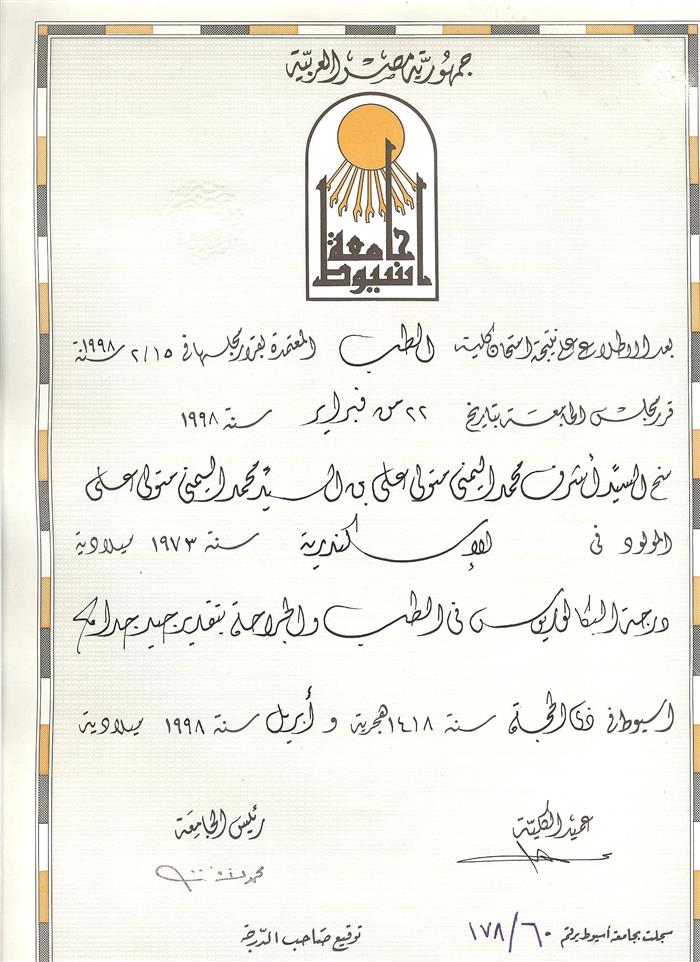 جمهورية مصر العربية
جامعة
أسيوط
بعد الاطلاع على نتيجة امتحان كلية الطب المعتمدة بقرار مجلسها في ٢/١٥ سنة ١٩٩٨
قرر مجلس الجامعة بتاريخ ٢٢ من فبراير سنة ١٩٩٨
منح السيد أشرف محمد اليمنى متولى على بن السيد محمد اليمنى متولى على
المولود فى الإسكندرية سنة ١٩٧٣ ميلادية
درجة البكالوريوس فى الطب والجراحة بتقدير جيد جدا
اسيوط فى ذى الحجة سنة ١٤١٨ هجرية و أبريل سنة ١٩٩٨ ميلادية
عميد الكلية
رئيس الجامعة
سجلت بجامعة أسيوط برقم ١٧٨/٦٠
توقيع صاحب الدرجة